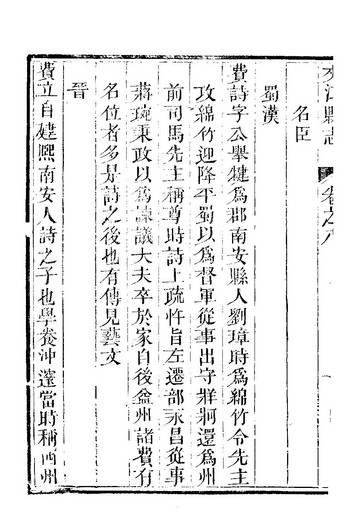 夾江縣志 卷之八
名臣
蜀漢
費詩字公舉犍為郡南安縣人劉璋時為綿竹令先主
攻綿竹迎降平蜀以為督軍從事出守牂牁還為州
前司馬先主稱尊時詩上疏忤旨左遷部永昌從事
蔣琬秉政以為諫議大夫卒於家自後益州諸費有
名位者多是詩之後也有傳見藝文
晉
費立自建熙南安人詩之子也學養沖邃當時稱西州